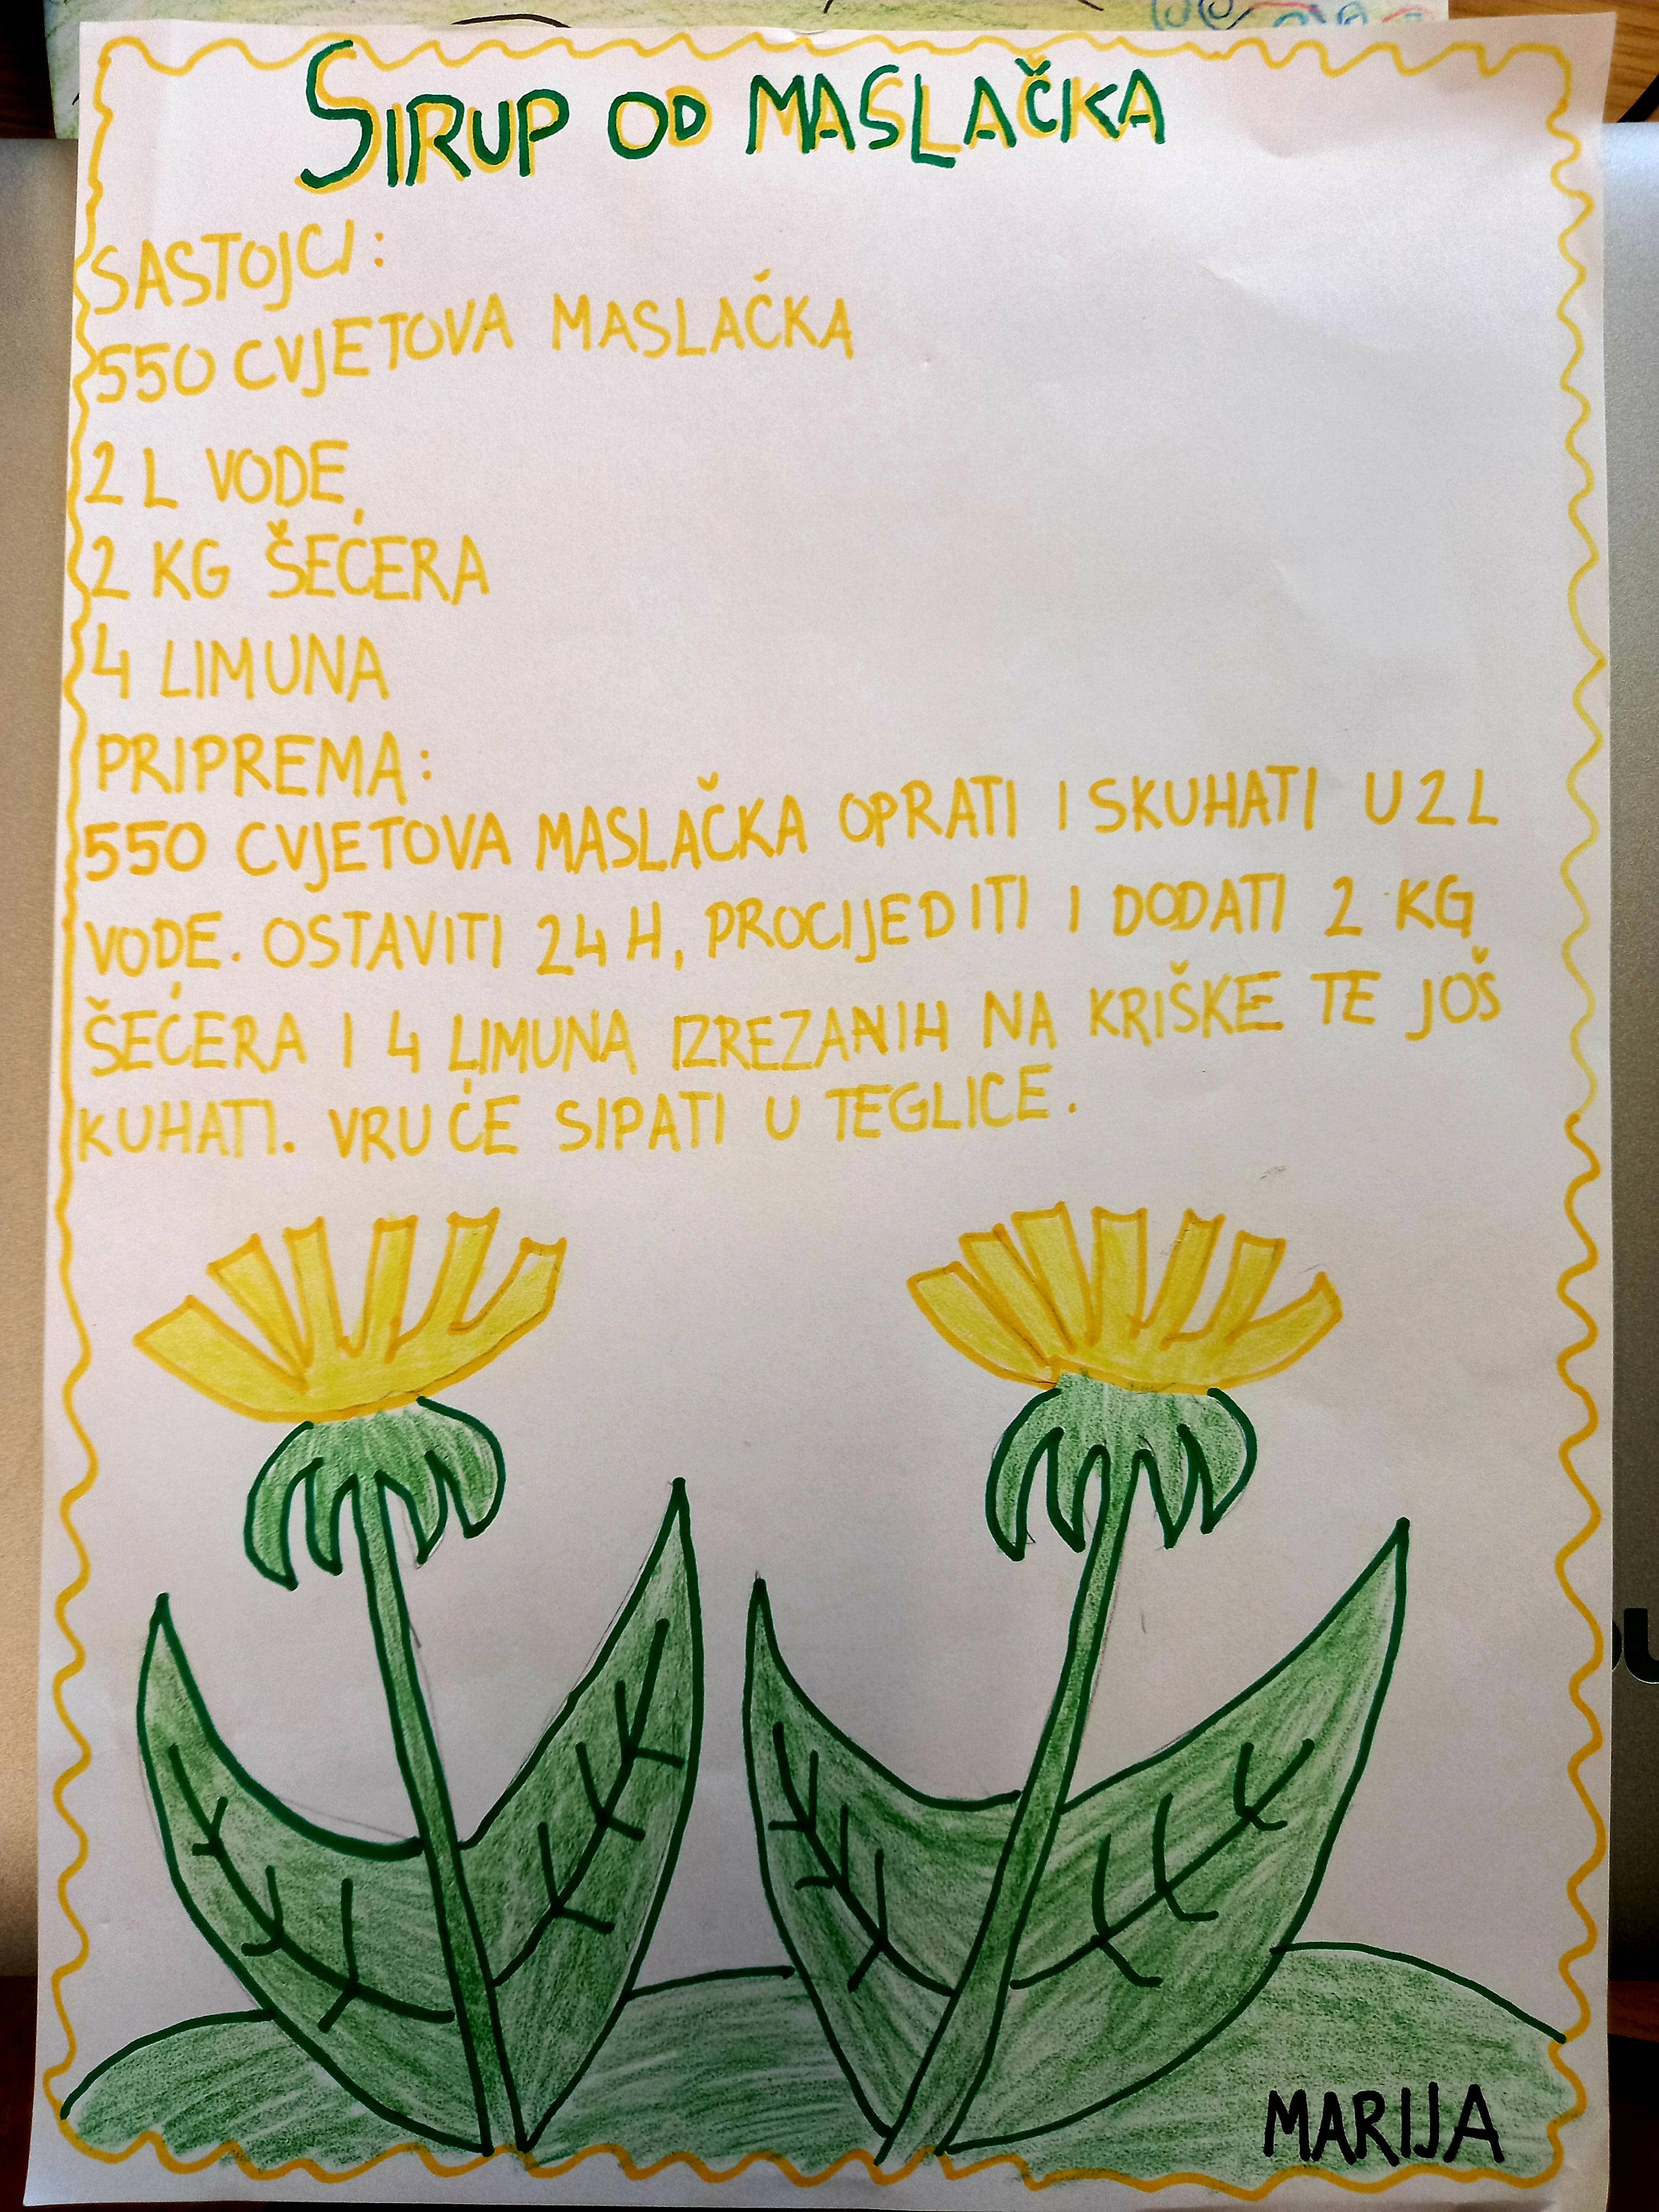 SIRUP OD MASLAČKA
SASTOJCI:
550 CVJETOVA MASLAČKA
2 L VODE
2 KG ŠEĆERA
4 LIMUNA
PRIPREMA:
550 CVJETOVA MASLAČKA OPRATI I SKUHATI U 2 L
VODE. OSTAVITI 24 H, PROCIJEDITI I DODATI 2 KG
ŠEĆERA I 4 LIMUNA IZREZANIH NA KRIŠKE TE JOŠ
KUHATI. VRUĆE SIPATI U TEGLICE.
MARIJA